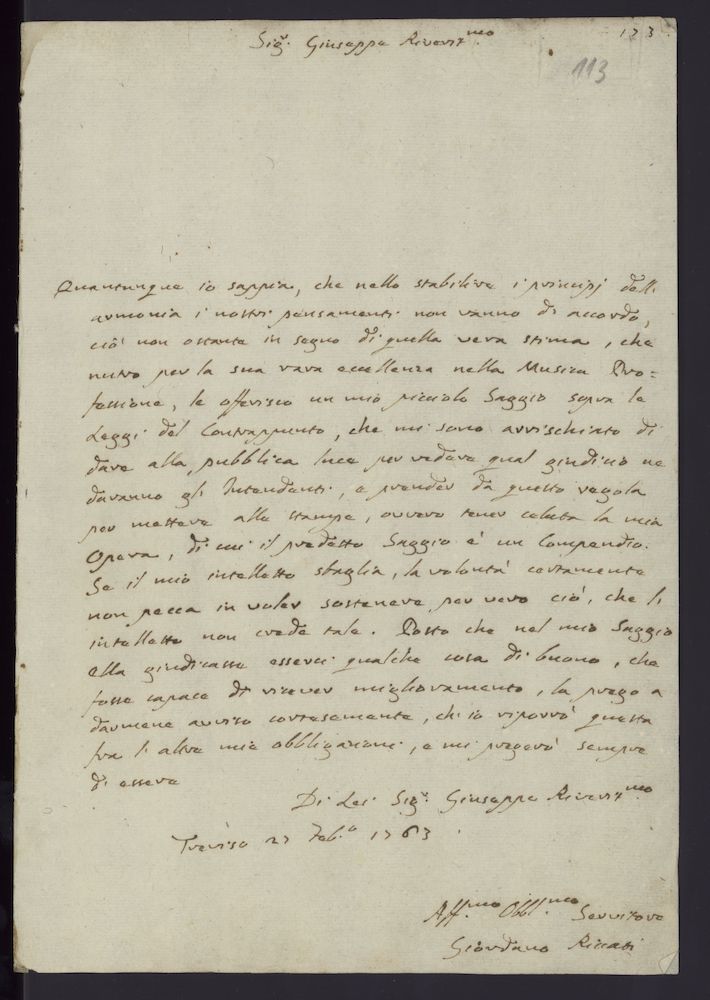 Sig.r Giuseppe Riverit.mo
173.
113
Quantunque io sappia, che nello stabilire i principj dell'
armonia i nostri pensamenti non vanno di accordo,
ciò non ostante in segno di quella vera stima, che
nutro per la sua rara eccellenza nella Musica Pro=
fessione, le offerisco un mio picciolo Saggio sopra le
Leggi del Contrappunto, che mi sono avvischiato di
dare alla pubblica luce per vedere qual giudicio ne
daranno gl' Intendenti, e prender da questo regola
per mettere alle stampe, ovvero tener celata la mia
Opera, di cui il predetto Saggio è un Compendio.
Se il mio intelletto sbaglia, la volontà certamente
non pecca in voler sostenere per vero ciò, che l'
intelletto non crede tale. Posto che nel mio Saggio
Ella giudicasse esserci qualche cosa di buono, che
fosse capace di ricever miglioramento, la prego a
darmene avviso cortesemente, ch'io riporrò questa
fra l'altre mie obbligazioni, e mi pregerò sempre
di essere
Di Lei Sig.r Giuseppe Riverit.mo
Treviso 27 Feb.o 1763
Aff.mo Obbl.mo Servitore
Giordano Riccati